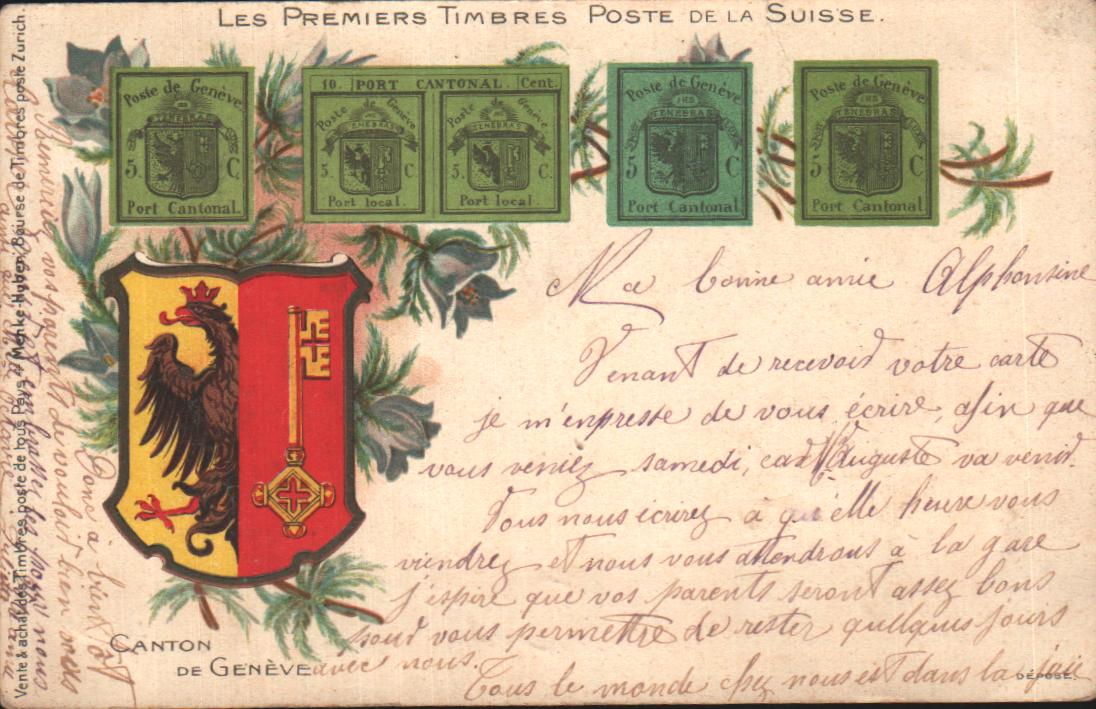 LES PREMIERS TIMBRES POSTE DE LA SUISSE.
Poste de Genève
POST TENEBRAS
5 C
Port Cantonal.
10. PORT CANTONAL. Cent.
Poste de Genève
TENEBRAS
5. C.
Port local.
Poste de Genève
TENEBRAS
5. C.
Port local.
Poste de Genève
IHS
TENEBRAS
5 C
Port Cantonal
Poste de Genève
IHS
TENEBRAS
5 C
Port Cantonal
Ma bonne amie Alphonsine
Venant de recevoir votre carte
je m'enpresse de vous écrire, afin que
vous veniez samedi, car Auguste va venir.
Vous nous écrirez à qu'elle heure vous
viendrez et nous vous attendrons à la gare
j'espire que vos parents seront assez bons
pour vous permettre de rester quelques jours
avec nous.
Tous le monde chez nous est dans la joie
Donc à bientôt
Remerciez vos parents de vouloir bien nous
CANTON
DE GENÈVE
DÉPOSÉ.
Vente & achat des Timbres poste de tous Pays Menke-Huber, Bourse de Timbres poste Zurich